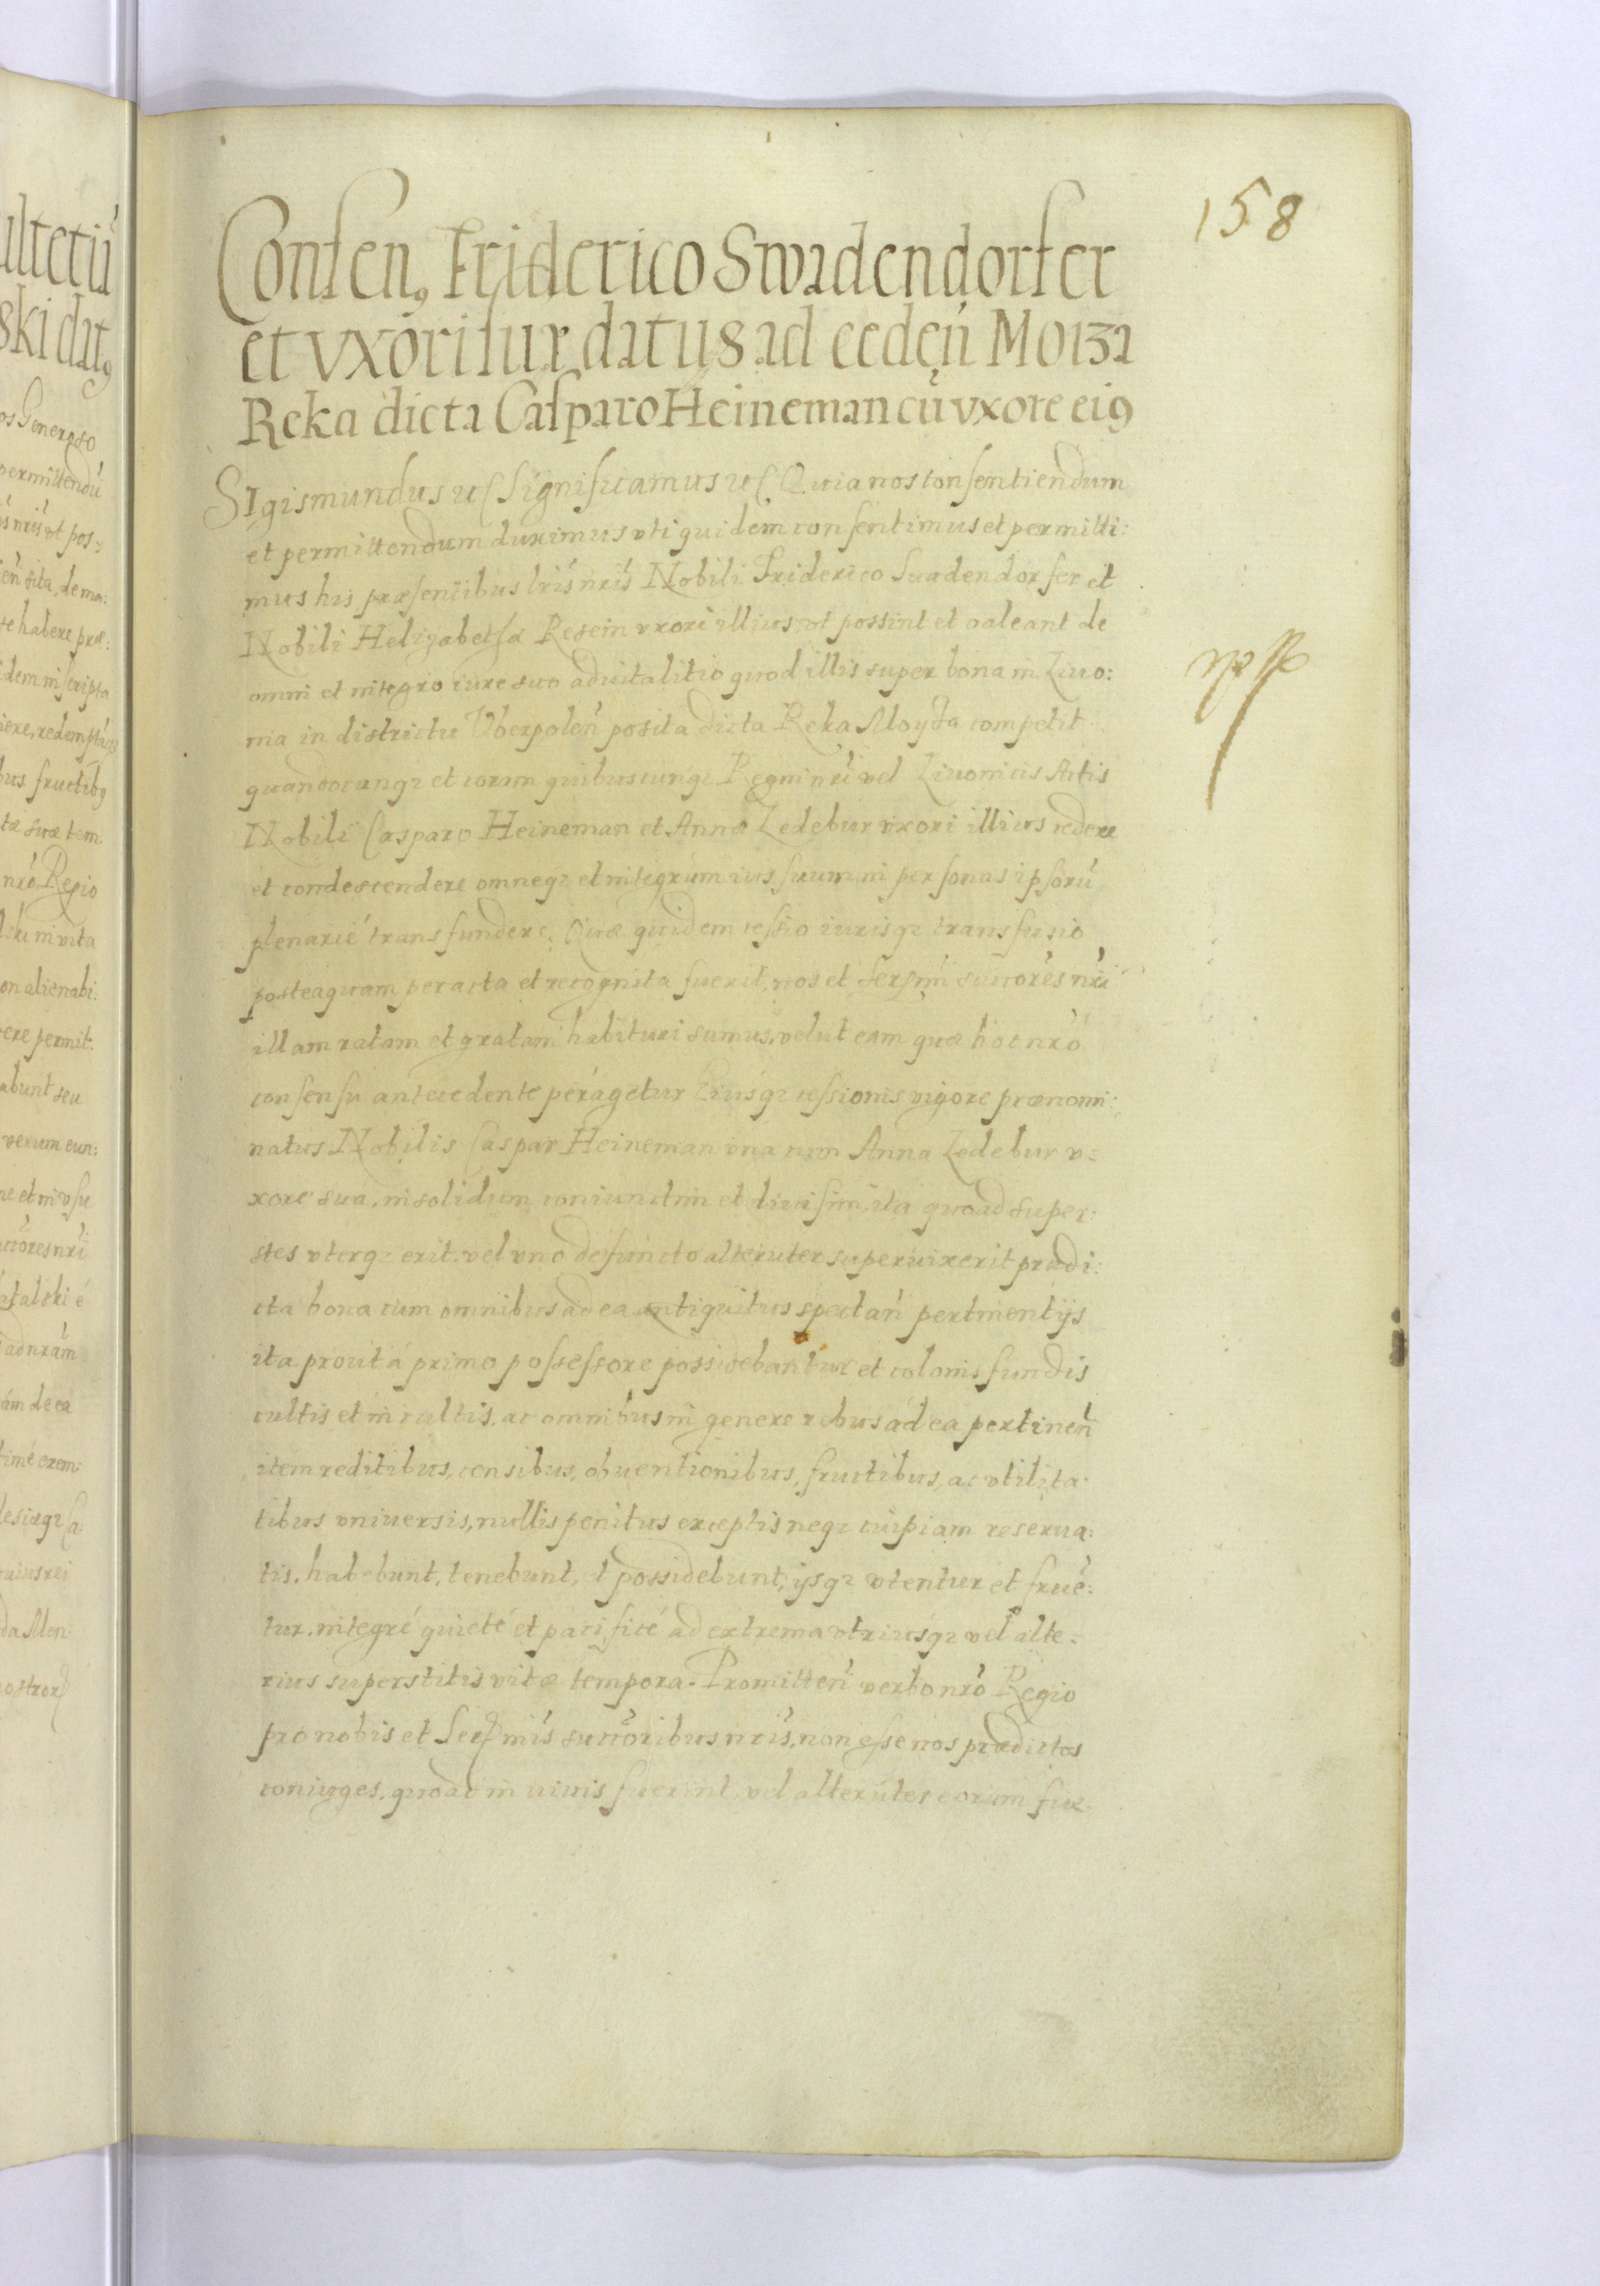 158
Consen9 Friderico Swadendorfer
et vxori suæ datus ad cedeń Moiza
Reka dicta Casparo Heineman cū vxore ei9
Sigismundus etc Significamus etc Quia nos consentiendum
et permittendum duximus vti quidem consentimus et permitti:
mus his præsentibus lris nris Nobili Friderico Suadendorfer et
Nobili Helizabethæ Resein vxori illius vt possint et valeant de
omni et integro iure suo aduitalitio quod illis super bona in Liuo:
nia in districtu Vberpoleń posita dicta Reka Moyza competit
quandocunq3 et coram quibuscunq3 Regni nri vel Liuonicis Actis
Nobili Casparo Heineman et Annæ Ledebur vxori illius cedere
et condescendere omneq3 et integrum ius suum in personas ipsorū
plenarié transfundere. Quæ quidem cessio iurisq3 transfusio
posteaquam peracta et recognita fuerit, nos et Sersmi succores nri
illam ratam et gratam habituri sumus, velut eam quæ hoc nro
consensu antecedente peragetur Eiusq3 cessionis vigore prænomi:
natus Nobilis Caspar Heineman vna cum Anna Ledebur v=
xore sua, in solidum coniunctim et diuisim, ita quoad super:
stes vterq3 erit. vel vno defuncto alteruter superuixerit prædi:
cta bona cum omnibus ad ea antiquitus spectań pertinentijs
ita prout á primo possessore possidebantur et colonis fundis
cultis et incultis, ac omnibus in genere rebus ad ea pertineń
item reditibus, censibus, obuentionibus, fructibus, ac vtilita:
tibus vniuersis, nullis penitus exceptis neq3 cuipiam reserua:
tis, habebunt, tenebunt, et possidebunt, ijsq3 vtentur et fruē:
tur, integré quieté et pacificé ad extrema vtriusq3 vel alte=
rius superstitis vitæ tempora. Promitteń verbo nro Regio
pro nobis et Sermis succoribus nris, non esse nos prædictos
coniuges, quoad in viuis fuerint, vel alteruter eorum fue